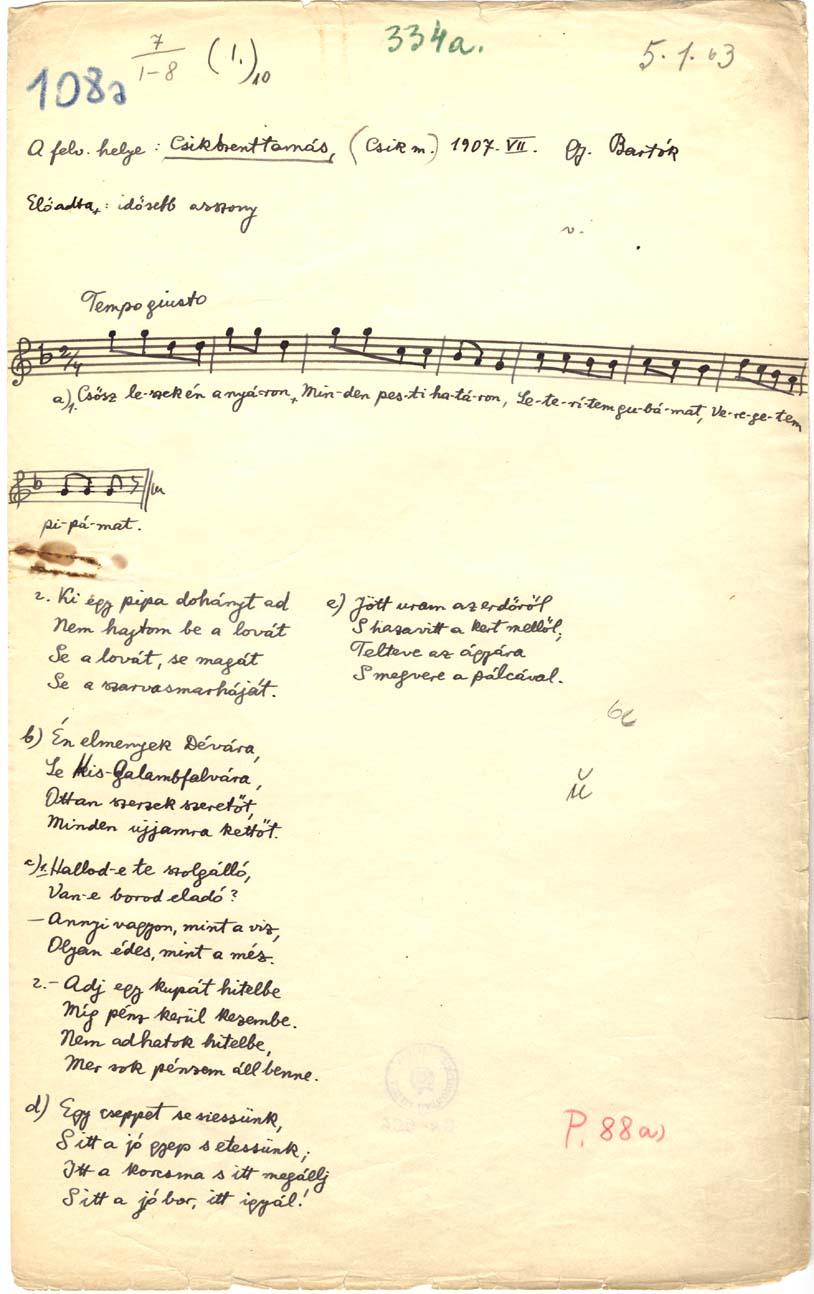 7
1-8
(1.)10
334a.
5.1.63
108a
A felv. helye: Csikszenttamás, (Csik m.) 1907. VII. Gy. Bartók
Előadta: idősebb asszony
v.
Tempo giusto
2/4
a) 1. Csősz le-szek én a nyá-ron, Min-den pes-ti ha-tá-ron, Le-te-rí-tem gu-bá-mat, Ve-re-ge-tem
pi-pá-mat.
2. Ki egy pipa dohányt ad
Nem hajtom be a lovát
Se a lovát, se magát
Se a szarvasmarháját.
e) Jött uram az erdőről
S hazavitt a kert mellől;
Telteve az ágyára
S megvere a pálcával.
b) Én elmenyek Dévára,
Le Kis-Galambfalvára,
Ottan szerzek szeretőt,
Minden ujjamra kettőt.
c) 1. Hallod-e te szolgálló,
Van-e borod eladó?
— Annyi vagyon, mint a viz,
Olyan édes, mint a méz.
2. – Adj egy kupát hitelbe
Míg pénz kerül kezembe.
Nem adhatok hitelbe,
Mer sok pénzem áll benne.
d) Egy cseppet se siessünk,
S itt a jó gyep s etessünk;
Itt a korcsma s itt megállj
S itt a jó bor, itt igyál!
P. 88a)